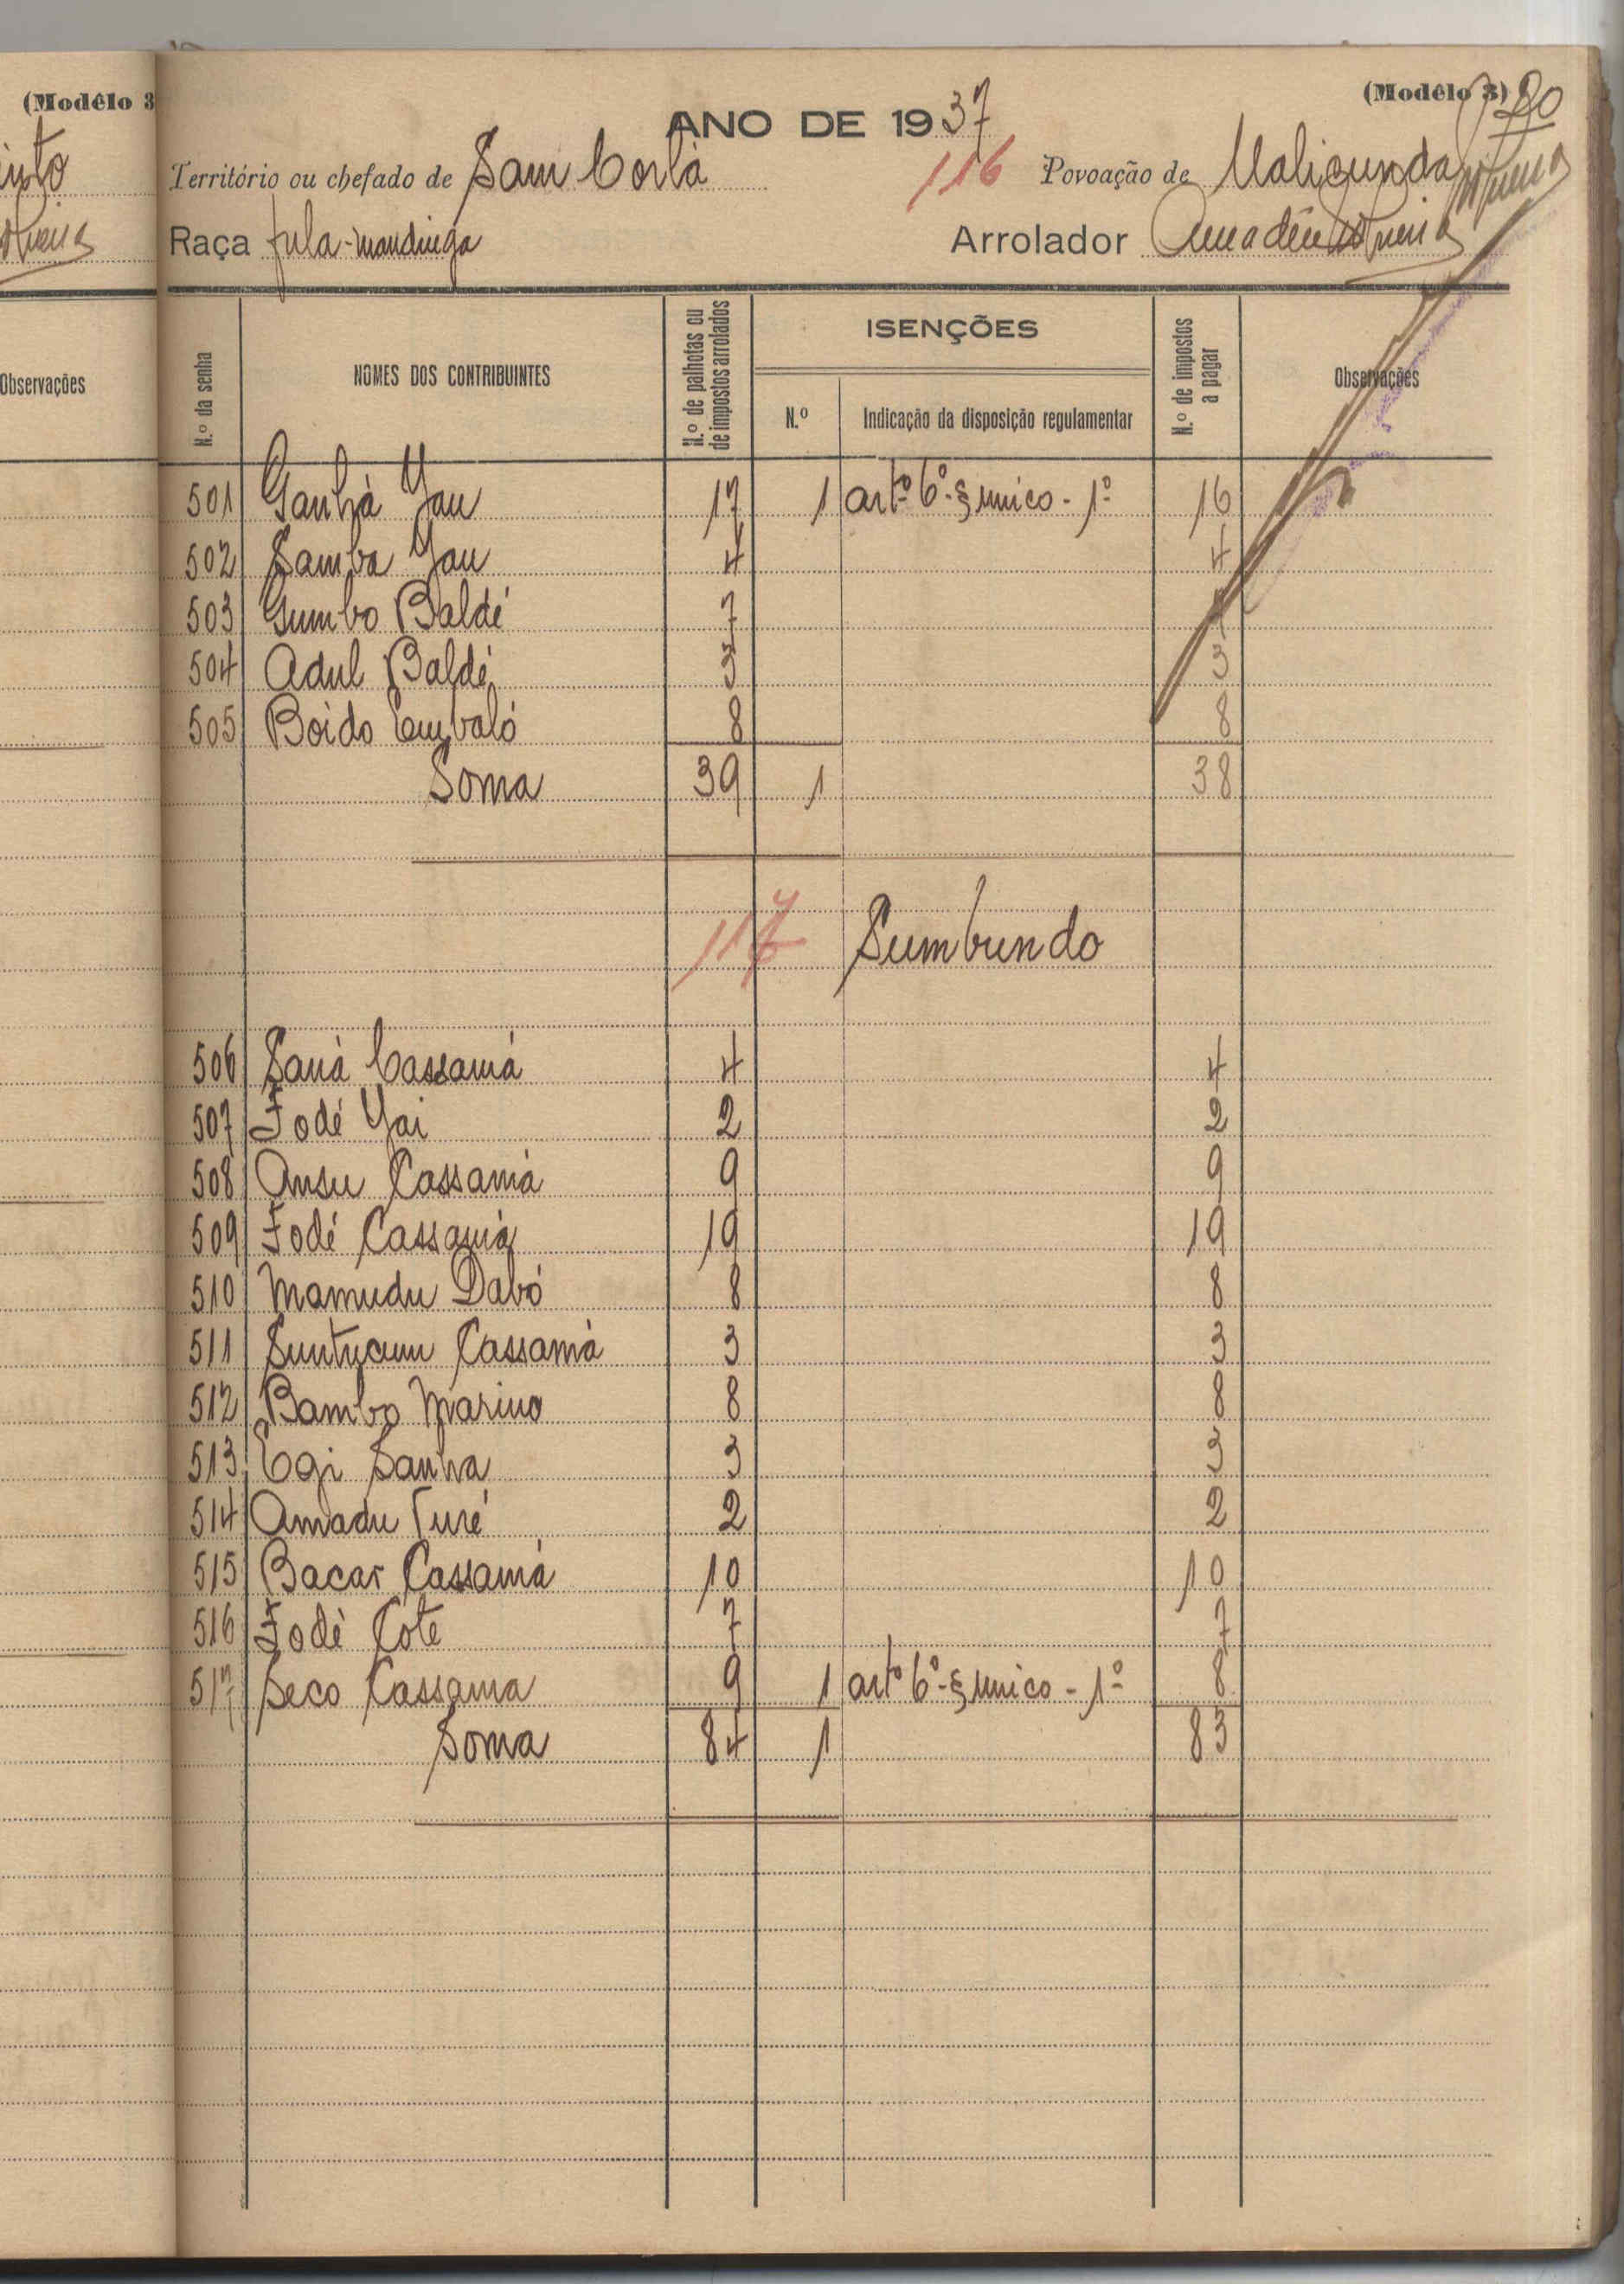 (Modêlo 3
Observações
(Modêlo 3)
ANO DE 1937
Território ou chefado de Sam Corlá
116
Povoação de Malicunda
Raça fula-mandinga
Arrolador
N.º da senha
NOMES DOS CONTRIBUINTES
N.º de palhotas ou de impostos arrolados
ISENÇÕES
N.º
Indicação da disposição regulamentar
N.º de impostos a pagar
Observações
501 Ganhá Jau 17 1 artº 6º-§ unico - 1º 16
502 Samba Jau 4 4
503 Gumbo Baldé 7 7
504 Adul Baldé 3 3
505 Boido Embaló 8 8
Soma 39 1 38
117 Sumbundo
506 Saná Cassamá 4 4
507 Fodé Yai 2 2
508 Ansu Cassamá 9 9
509 Fodé Cassamá 19 19
510 Mamudu Dabó 8 8
511 Suntucum Cassamá 3 3
512 Bambo Marino 8 8
513 Egi Sanha 3 3
514 Amadu Turé 2 2
515 Bacar Cassamá 10 10
516 Fodé Cote 7 7
517 Seco Cassama 9 1 artº 6º-§ unico - 1º 8
Soma 84 1 83